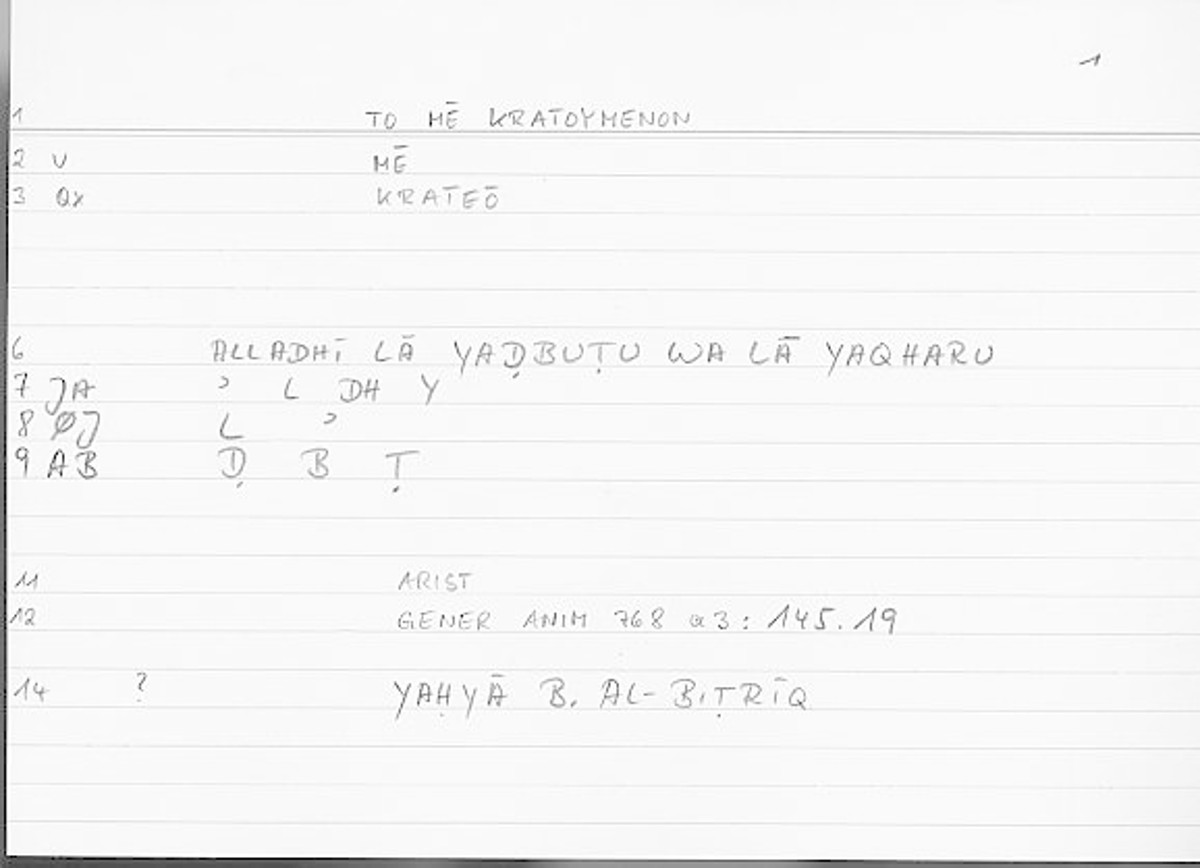 1
1 TO MĒ KRATOYMENON
2 V MĒ
3 Qx KRATEŌ
6 ALLADHĪ LĀ YAḌBUṬU WA LĀ YAQHARU
7 JA ʾ L DH Y
8 ØJ L ʾ
9 AB Ḍ B Ṭ
11 ARIST
12 GENER ANIM 768 a3: 145.19
14 ? YAḤYĀ B. AL-BIṬRĪQ